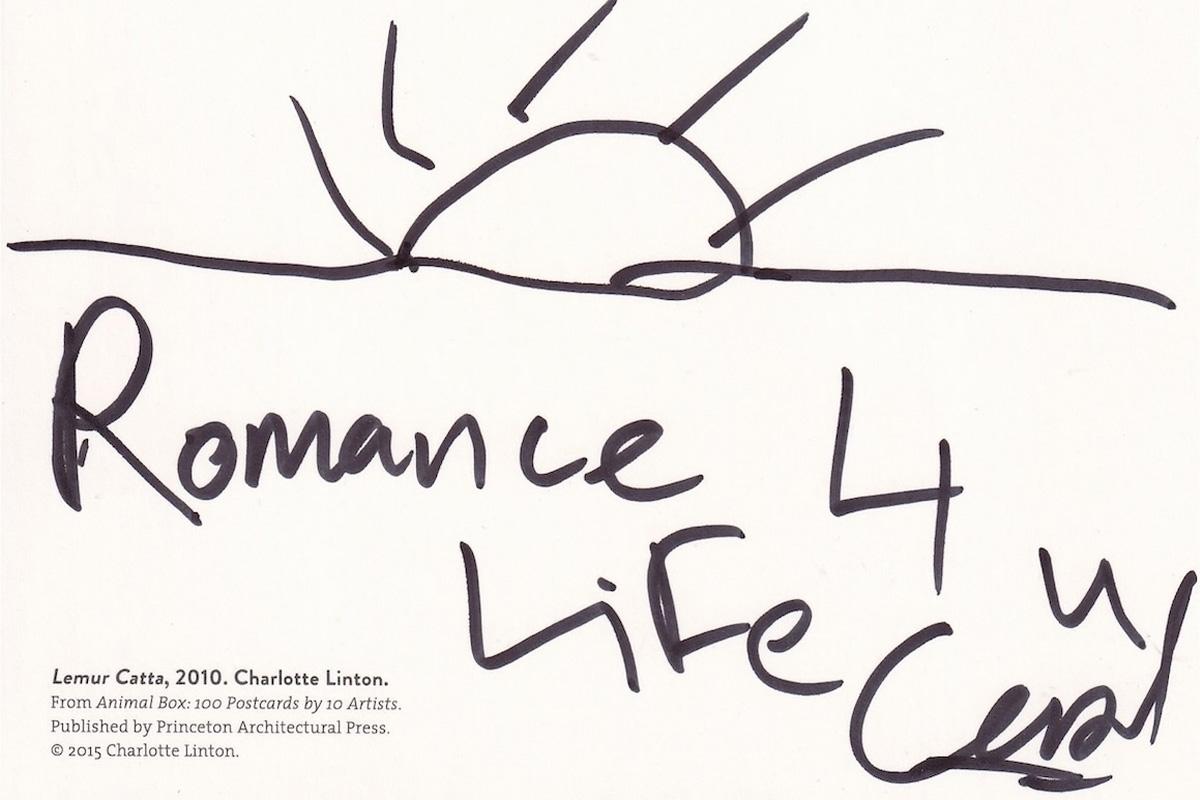 Romance 4
LiFe u
Lemur Catta, 2010. Charlotte Linton.
From Animal Box: 100 Postcards by 10 Artists.
Published by Princeton Architectural Press.
© 2015 Charlotte Linton.